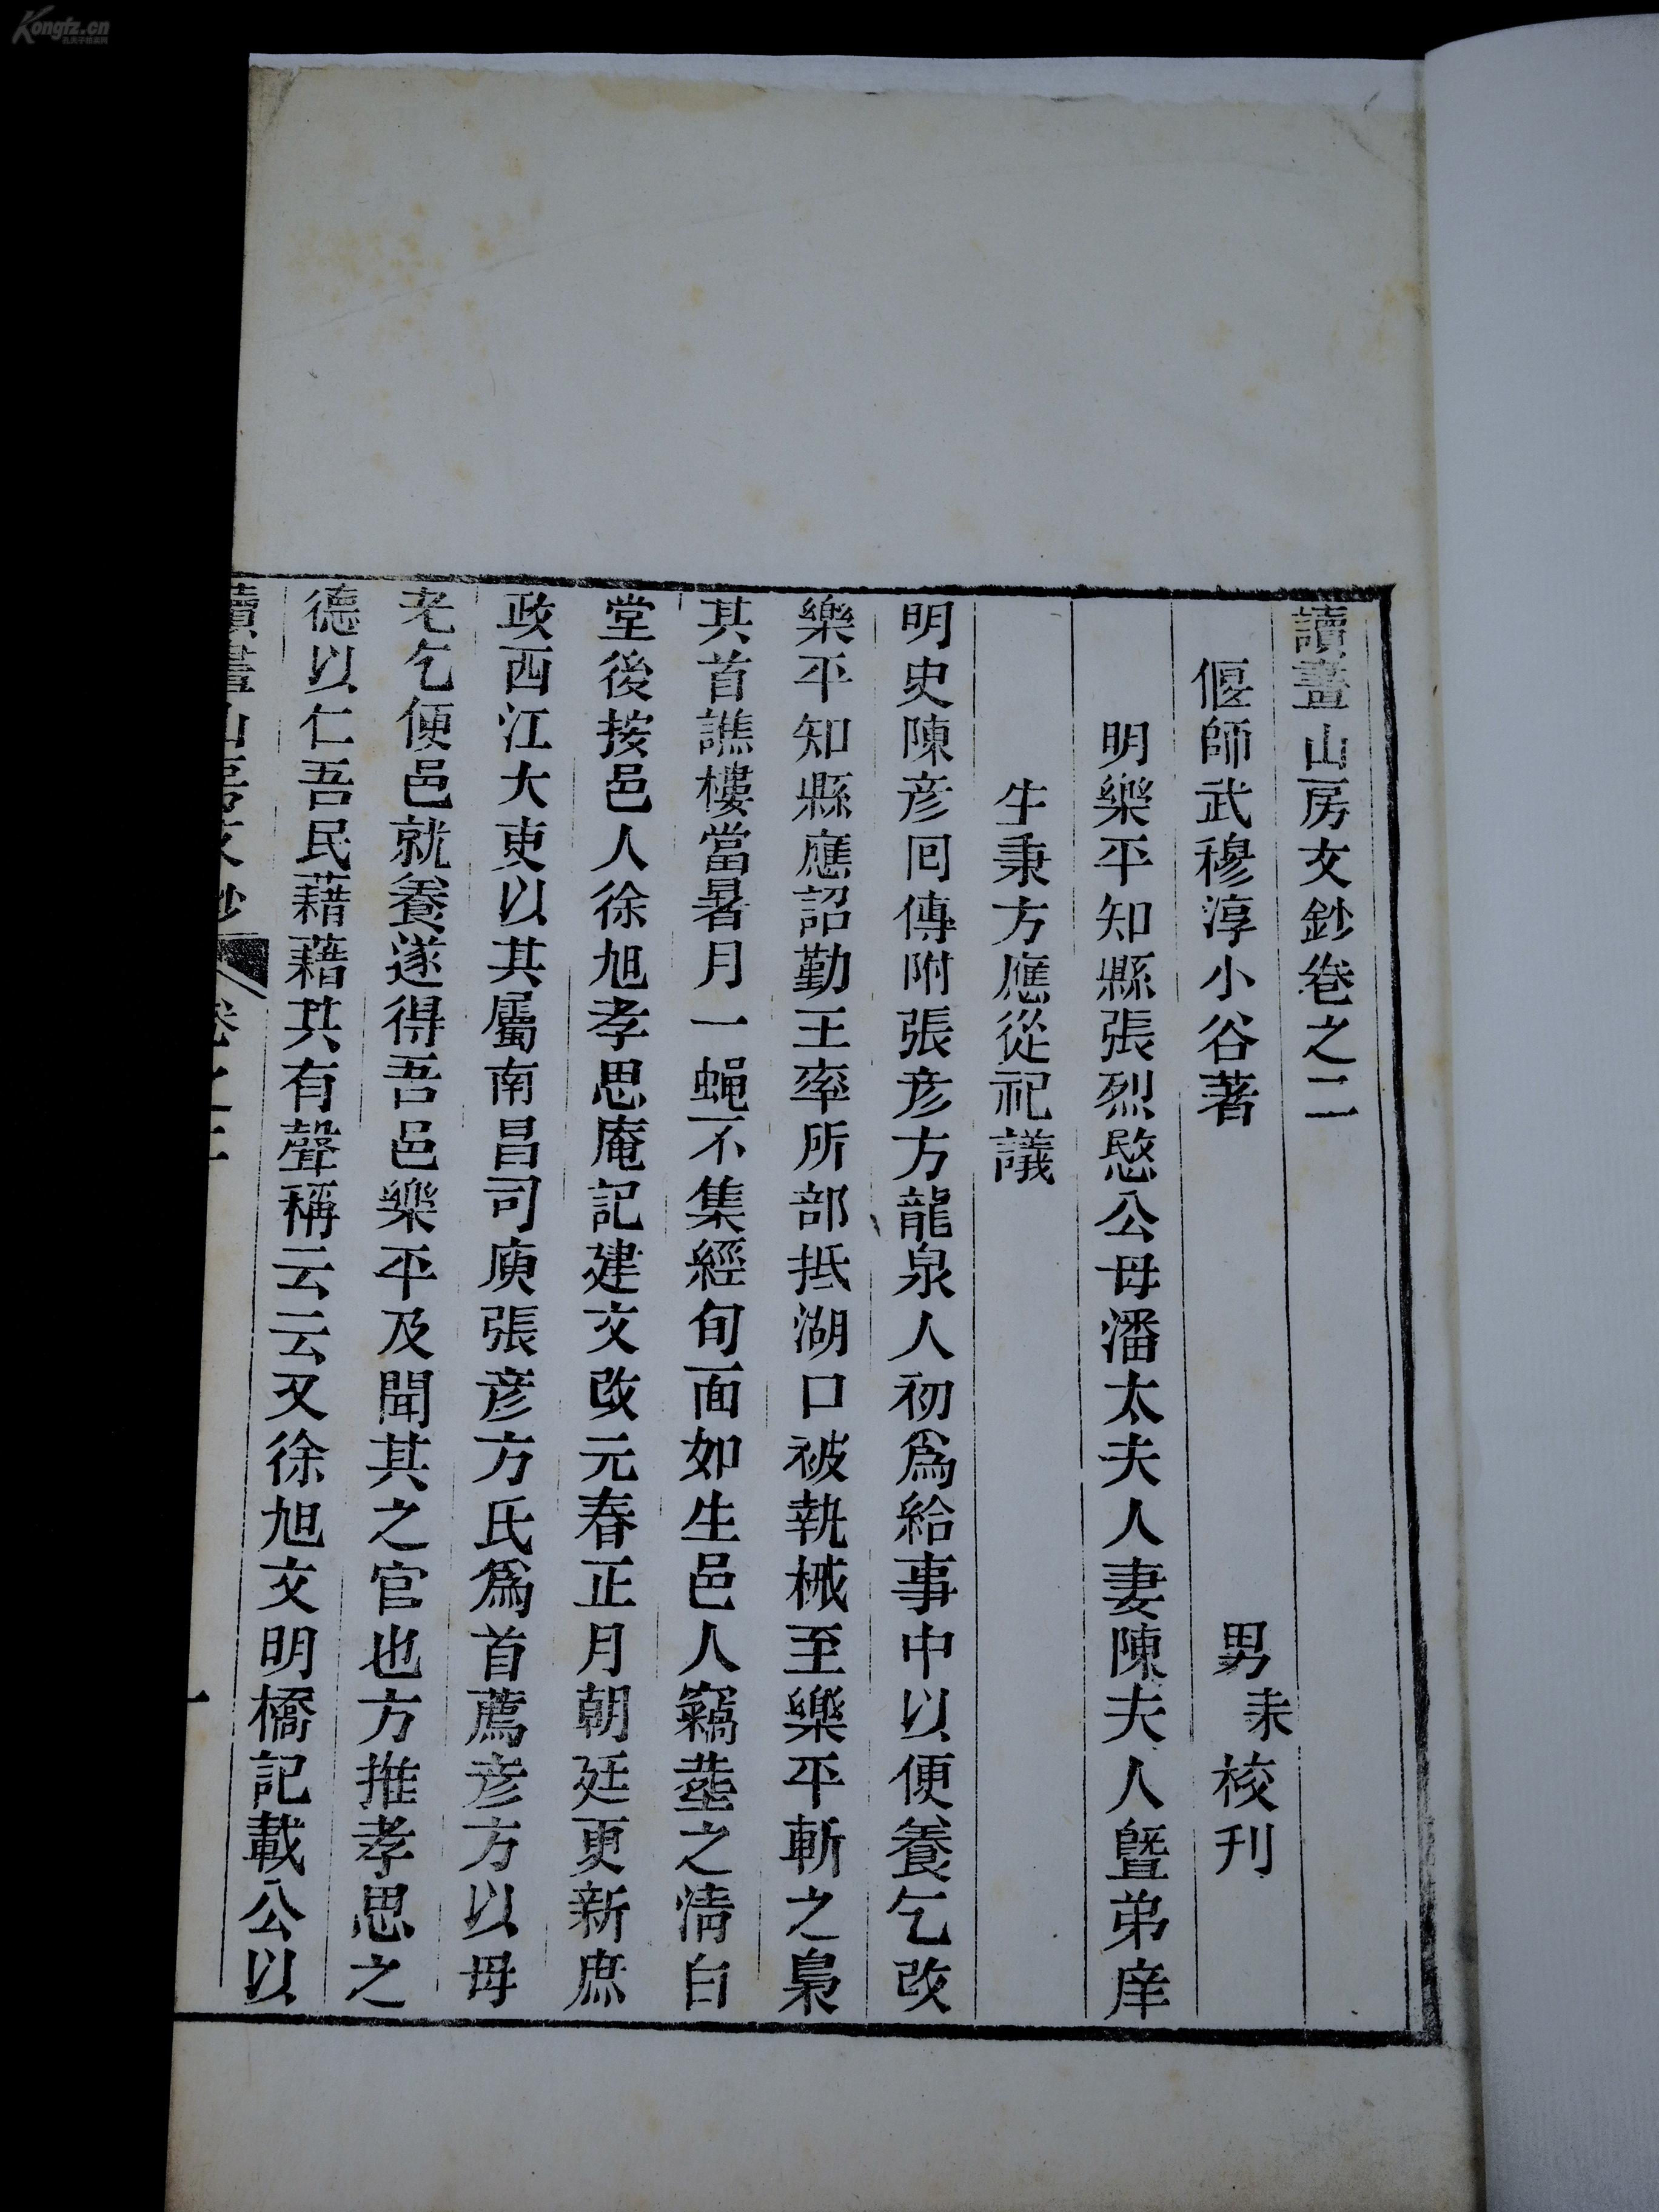 Kongfz.cn
孔夫子旧书网
讀畫山房文鈔卷之二
偃師武穆淳小谷著 男耒校刊
明樂平知縣張烈愍公母潘太夫人妻陳夫人暨弟庠
生秉方應從祀議
明史陳彥回傳附張彥方龍泉人初爲給事中以便養乞改
樂平知縣應詔勤王率所部抵湖口被執械至樂平斬之梟
其首譙樓當暑月一蝇不集經旬面如生邑人竊塟之清白
堂後按邑人徐旭孝思庵記建文改元春正月朝廷更新庶
政西江大吏以其屬南昌司庾張彥方氏爲首薦彥方以母
老乞便邑就養遂得吾邑樂平及聞其之官也方推孝思之
德以仁吾民藉藉其有聲稱云云又徐旭文明橋記載公以
讀畫山房文鈔 卷之二 一